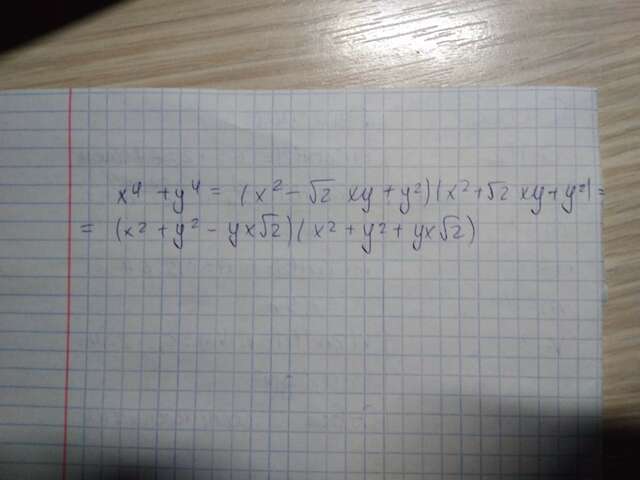 x⁴ + y⁴ = (x² - √2 xy + y²)(x² + √2 xy + y²) =
= (x² + y² - yx√2)(x² + y² + yx√2)